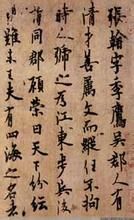 張翰字季鷹吳郡人有
清才善屬文而縱任不拘
時人號之為江東步兵後
謂同郡顧榮曰天下紛紜
禍難未已夫有四海之名者